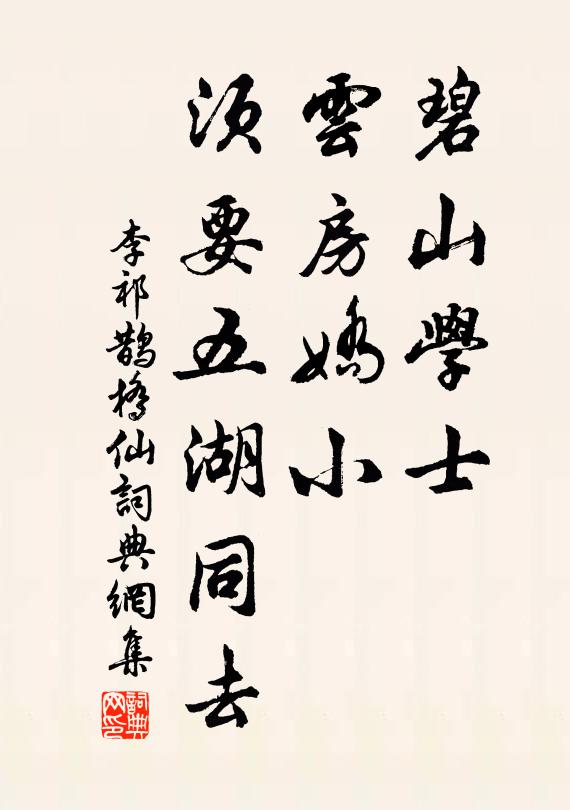 碧山學士
雲房嬌小
須要五湖同去
李祁鵲橋仙詞典網集
詞典网印